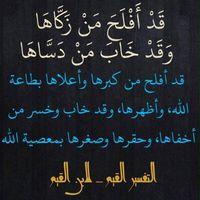 قَدْ أَفْلَحَ مَنْ زَكَّاهَا
وَقَدْ خَابَ مَنْ دَسَّاهَا
قد أفلح من كبرها وأعلاها بطاعة
الله، وأظهرها، وقد خاب وخسر من
أخفاها، وحقرها وصغرها بمعصية الله
التفسير القيم - لابن القيم